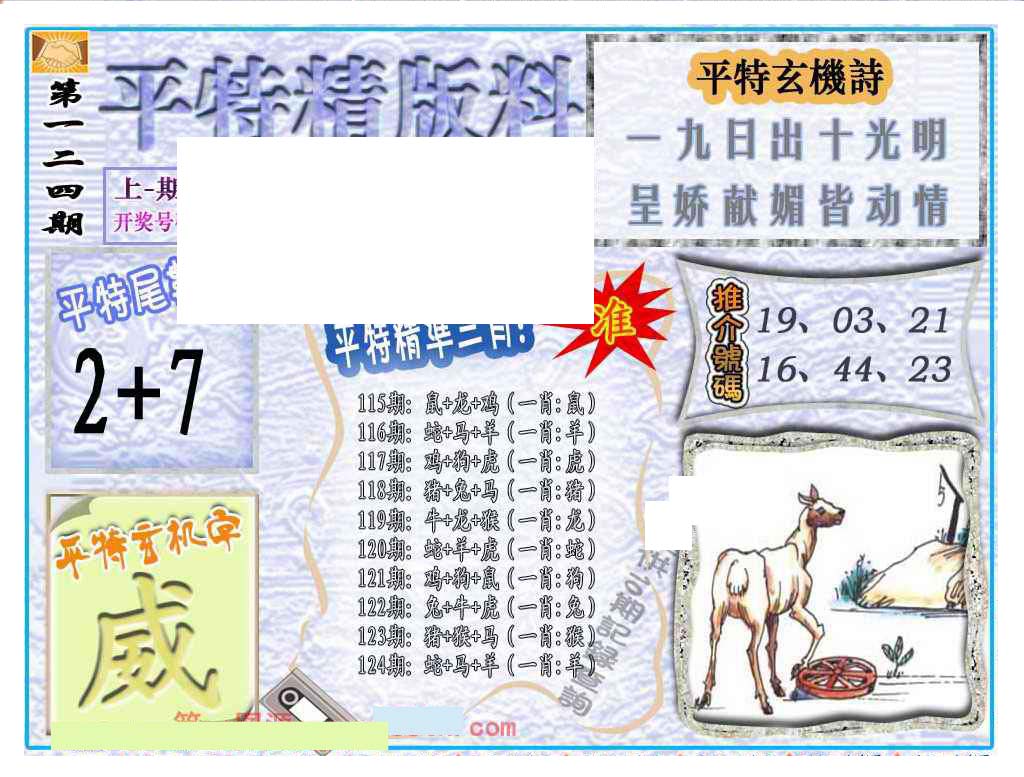 第一二四期
平特精版料
上-期
开奖号
平特玄機詩
一九日出十光明
呈娇献媚皆动情
平特尾
2+7
平特精準三肖!
准
推介號碼
19、03、21
16、44、23
115期: 鼠+龙+鸡 (一肖:鼠)
116期: 蛇+马+羊 (一肖:羊)
117期: 鸡+狗+虎 (一肖:虎)
118期: 猪+兔+马 (一肖:猪)
119期: 牛+龙+猴 (一肖:龙)
120期: 蛇+羊+虎 (一肖:蛇)
121期: 鸡+狗+鼠 (一肖:狗)
122期: 兔+牛+虎 (一肖:兔)
123期: 猪+猴+马 (一肖:猴)
124期: 蛇+马+羊 (一肖:羊)
供10期記錄查詢
平特玄机字
威
5
com